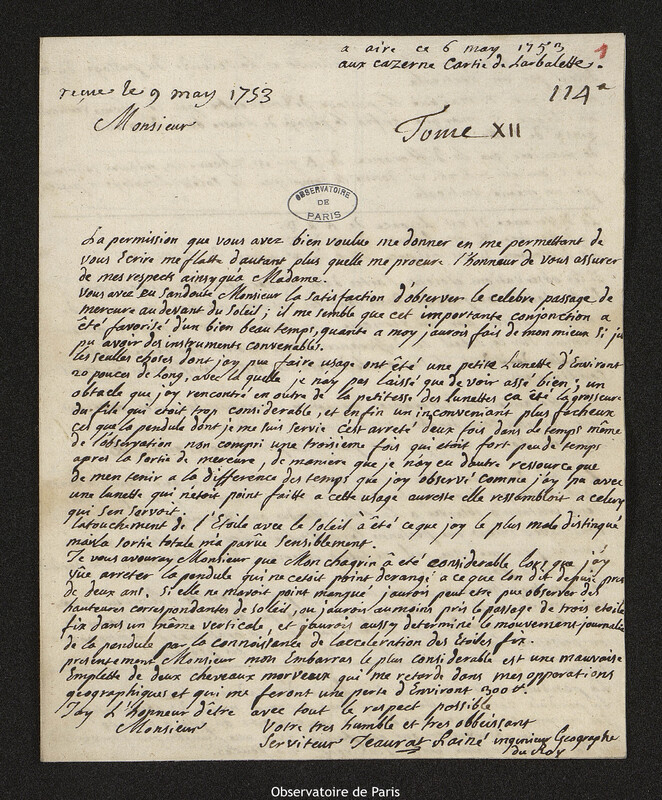 a aire ce 6 may 1753
aux cazerne Cartie de Larbalette.
1
114a
reçue le 9 may 1753
Monsieur
Tome XII
OBSERVATOIRE
DE
PARIS
La permission que vous avez bien voulue me donner en me permettant de
vous Ecrire me flatte d'autant plus quelle me procure l'honneur de vous assurer
de mes respect ainsy qu'a Madame.
vous avez eu sandoute Monsieur la satisfaction d'observer le celebre passage de
mercure au devant du soleil; il me semble que cet importante conjonction a
êté favorisé d'un bien beau temps, quante a moy jaurois fais de mon mieux si j'u
pu avoir des instruments convenables.
les seules choses dont joy pue faire usage ont êté une petite Lunette d'Environt
20 pouces de Long, avec la quelle je nay pas laissé que de voir assé bien; un
obstacle que joy rencontré en outre de la petitesse des lunettes ca eté la grosseure
du filé qui etoit trop considerable, et enfin un inconveniant plus facheux
cet que la pendule dont je me suis servie cest arreté deux fois dans le temps même
de l'observation non compri une troisieme fois qui etoit fort peu de temps
apres la sortie de mercure, de maniere que je nay eu dautre ressource que
de men tenir a la difference des temps que joy observé comme j'ay pu avec
une lunette qui nétoit point faitte a cette usage aureste elle ressembloit a celuy
qui sen servoit.
latouchement de l'Etoile avec le soleil à été ce que joy le plus male distingué
mais la sortie totale m'a parüe sensiblement.
Je vous avouray Monsieur que Mon chagrin â eté considerable lors que j'ôy
vüe arreter la pendule qui ne cetoit point derangé a ce que lon dit depuis pres
de deux ans. si elle ne mavoit point manqué jaurois peut etre pue observer des
hauteures correspondantes de soleil, ou jaurois au moins pris le passage de trois etoile
fix dans un même verticale, et jaurois aussy determiné le mouvement journalie
de la pendule par la connoissance de lacceleration des Etoiles fix.
presentement Monsieur mon Embarras le plus considerable est une mauvaise
Emplette de deux chevaux morveux qui me retarde dans mes opparations
geographiques et qui me feront une perte d'Environt 300 lt.
Jay L'honneur d'être avec tout le respect possible
Monsieur
Votre tres humble et tres obbeissant
Serviteur Jeaurat Lainé ingenieur Geographe
du Roy
Observatoire de Paris